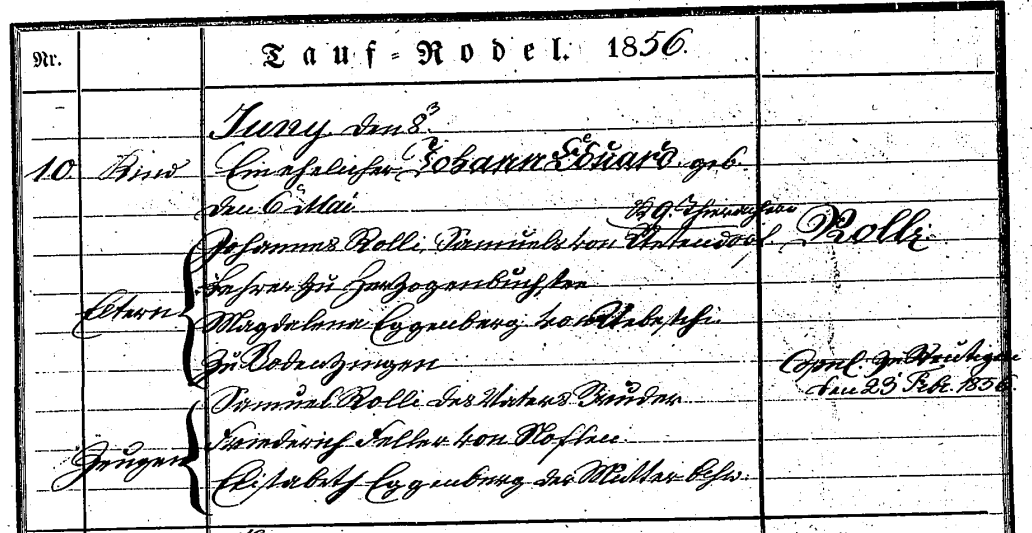 Nr. Tauf-Rodel. 1856.
Juny. den 8.
10. Kind Ein ehelicher Johann Eduard. geb.
den 6 Mai
Johannes Rolli, Samuels von Uetendorf Rolli.
Eltern Lehrer zu Herzogenbuchsee
Magdalena Eggenberg von Uebeschi.
zu Bodenzingen Copul. zu Reutigen
den 23 Feb. 1856.
Samuel Rolli des Vaters Bruder
Zeugen Friederich Feller von Noflen.
Elisabeth Eggenberg der Mutter Schw.